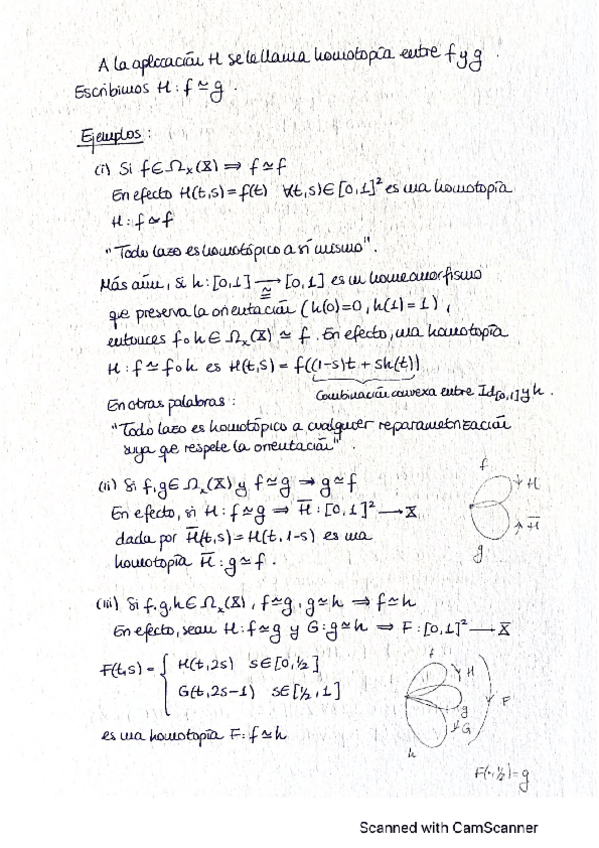 A la aplicación H se le llama homotopía entre f y g.
Escribimos H: f ≃ g.
Ejemplos:
(i) Si f ∈ Ω_x(X) ⇒ f ≃ f
En efecto H(t,s) = f(t) ∀(t,s) ∈ [0,1]² es una homotopía
H: f ≃ f
"Todo lazo es homotópico a sí mismo".
Más aún, si h: [0,1] →≅ [0,1] es un homeomorfismo
que preserva la orientación (h(0)=0, h(1)=1),
entonces f∘h ∈ Ω_x(X) ≃ f. En efecto, una homotopía
H: f ≃ f∘h es H(t,s) = f((1-s)t + sh(t))
Combinación convexa entre Id_[0,1] y h.
En otras palabras:
"Todo lazo es homotópico a cualquier reparametrización
suya que respete la orientación".
(ii) Si f,g ∈ Ω_x(X) y f ≃ g ⇒ g ≃ f
En efecto, si H: f ≃ g ⇒ H̅: [0,1]² → X
dada por H̅(t,s) = H(t,1-s) es una
homotopía H̅: g ≃ f.
f
H
H̅
g
(iii) Si f,g,h ∈ Ω_x(X), f ≃ g, g ≃ h ⇒ f ≃ h
En efecto, sean H: f ≃ g y G: g ≃ h ⇒ F: [0,1]² → X
F(t,s) = { H(t,2s) s∈[0,1/2]
G(t,2s-1) s∈[1/2,1]
es una homotopía F: f ≃ h
f
H
g
F
G
h
F(-,1/2)=g
Scanned with CamScanner